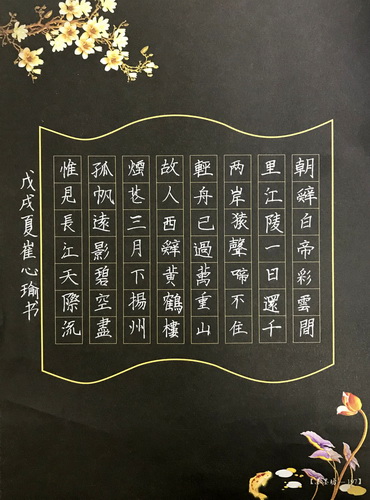 朝辭白帝彩雲間
里江陵一日還千
两岸猿聲啼不住
輕舟已過萬重山
故人西辭黄鶴樓
煙花三月下揚州
孤帆遠影碧空盡
惟見長江天際流
戊戌夏崔心瑜书
197